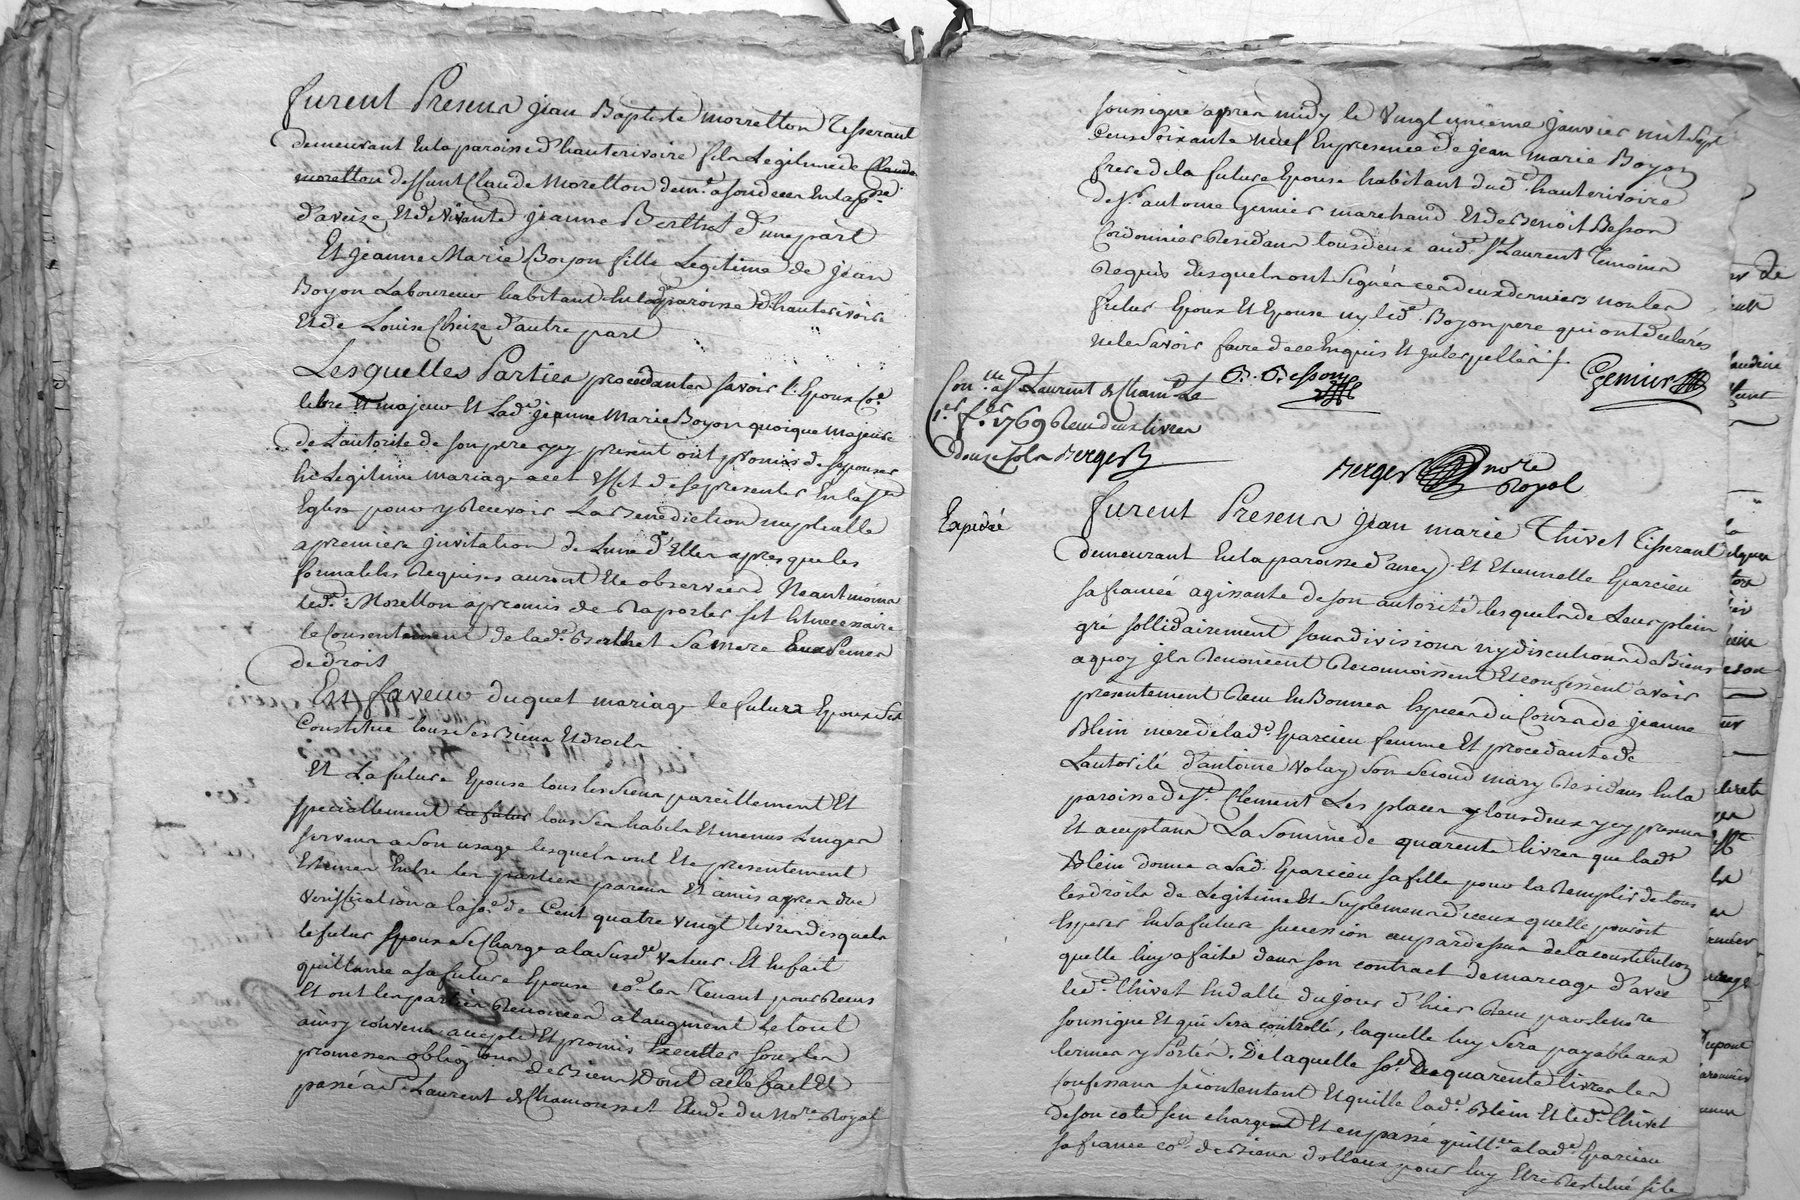 furent Presens jean Baptiste morretton Tisserant
demeurant en la paroisse d'hauterivoire fils Legitime de Claude
moretton deffunt Claude Moretton dem.t a son deces en la p.sse
d'aveize Et de vivante jeanne Berthet d'une part
Et jeanne Marie Boyon fille Legitime de jean
Boyon Laboureur habitant en lad. paroisse d'hauterivoire
Et de Louise Cheize d'autre part
Lesquelles Parties procedantes savoir l'Epoux Co.e
libre et majeur Et Lad.e jeanne Marie Boyon quoique Majeure
de L'autorité de son pere icy present ont promis de s'epouser
en Legitime mariage a cet Effet de se presenter en la s.te
Eglise pour y Recevoir La Benediction nuptialle
a premiere jnvitation de L'une d'Elles apres que les
formalités Requises auront Eté observeés Neantmoins
led. Moretton a promis de Raporter s'il Est necessaire
le Consentement de lad.e Berthet sa mere aux Peines
de droit
En faveur duquel mariage le futur Epoux s'est
Constitué tous ses Biens Et droits
Et La future Epouse tous les siens pareillement Et
speciallement la futur tous ses habits Et menus Linges
servans a son usage lesquels ont Eté presentement
Estimés Entre les parties parens Et amis apres due
veriffication a la so.e de Cent quatre vingt livres desquels
le futur Epoux se Charge a la susd.e valeur Et En fait
quittance a sa future Epouse co.e les Tenant pour Reçus
Et ont les parties Renoncées a l'augment Le tout
ainsy convenu accepté Et promis Executer sous les
promesses oblig.ons de Biens Dont acte fait Et
passé a S.t Laurent de Chamousset Etude du No.re Royal
soussigné apres midy le vingt unieme janvier mil sept
cens soixante neuf En presence de jean marie Boyon
frere de la future Epouse habitant dud. hauterivoire
de s.r antoine Gemier marchand Et de Benoit Besson
Cordonnier Residans tous deux aud. S.t Laurent Temoins
Requis desquels ont signés ces deux derniers non les
futur Epoux Et Epouse ny led. Boyon pere qui ont declarés
ne le savoir faire de ce Enquis Et jnterpellés ./.
B. Besson
Gemier
Con.lé a S.t Laurent de Cham.t Le
1.er f.er 1769 Reçu deux livres
douze sols Berger
Berger no.re
Royal
Expedié
furent Presens jean marie Thivet Tisserant
demeurant En la paroisse d'ancy Et Etiennette Eparcieu
sa fiancée agissante de son autorité lesquels de Leur plein
gré sollidairement sans division ny discution de Biens
a quoy jls Renoncent Reconnoissent Et confessent avoir
presentement Reçu En Bonnes Especes du Cours de jeanne
Blein mere de lad.e Eparcieu femme Et procedante de
L'autorité d'antoine Volay son second mary Residens En la
paroisse de S.t Clement Les places y tous deux icy presens
Et aceptans La somme de quarente livres que lad.e
Blein donne a Lad. Eparcieu sa fille pour la Remplir de tous
les droits de Legitime Et suplement d'iceux quelle pouroit
Esperer En sa future succession au par dessus de la constitution
quelle luy a faite dans son contract de mariage d'avec
led. Thivet En datte du jour d'hier Reçu par le no.re
soussigné Et qui sera controllé, laquelle luy sera payable aux
termes y Portés. De laquelle so.e de quarente livres les
Confessans se contentent Et quitte lad.e Blein Et led. Thivet
de son coté s'en charge Et en passé quitt.ce a lad.e Eparcieu
sa fiancée co.e de Biens dottaux pour luy Etre Restitué si le